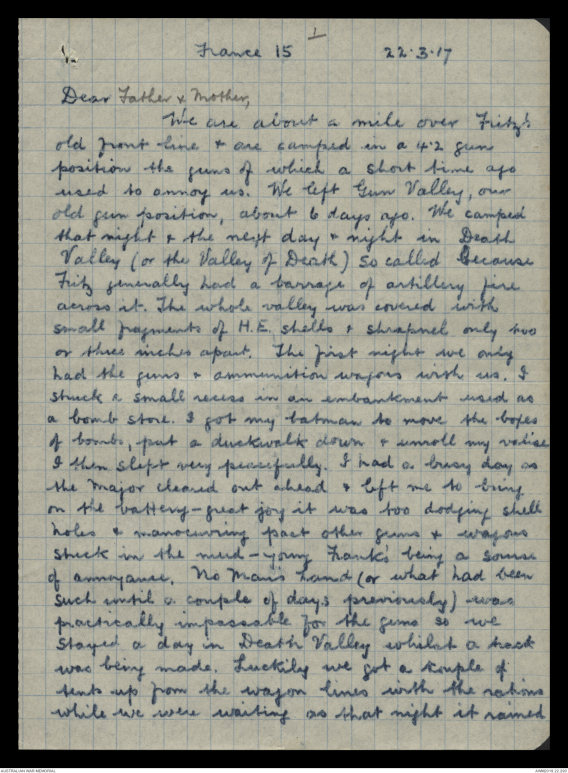 1
France 15 22.3.17
Dear Father & Mother,
We are about a mile over Fritz's
old front line & are camped in a 4.2 gun
position the guns of which a short time ago
used to annoy us. We left Gun Valley, our
old gun position, about 6 days ago. We camped
that night & the next day & night in Death
Valley (or the Valley of Death) so called because
Fritz generally had a barrage of artillery fire
across it. The whole valley was covered with
small fragments of H.E. shells & shrapnel only two
or three inches apart. The first night we only
had the guns & ammunition wagons with us. I
struck a small recess in an embankment used as
a bomb store. I got my batman to move the boxes
of bombs, put a duckwalk down & unroll my valise
I then slept very peacefully. I had a busy day as
the Major cleared out ahead & left me to bring
on the battery - great joy it was too dodging shell
holes & manoeuvring past other guns & wagons
stuck in the mud - young Frank's being a source
of annoyance. No Man's Land (or what had been
such until a couple of days previously) was
practically impassable for the guns so we
stayed a day in Death Valley whilst a track
was being made. Luckily we got a couple of
tents up from the wagon lines with the rations
while we were waiting as that night it rained
AUSTRALIAN WAR MEMORIAL